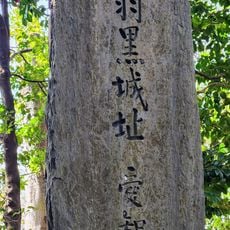 羽黒城址 愛知